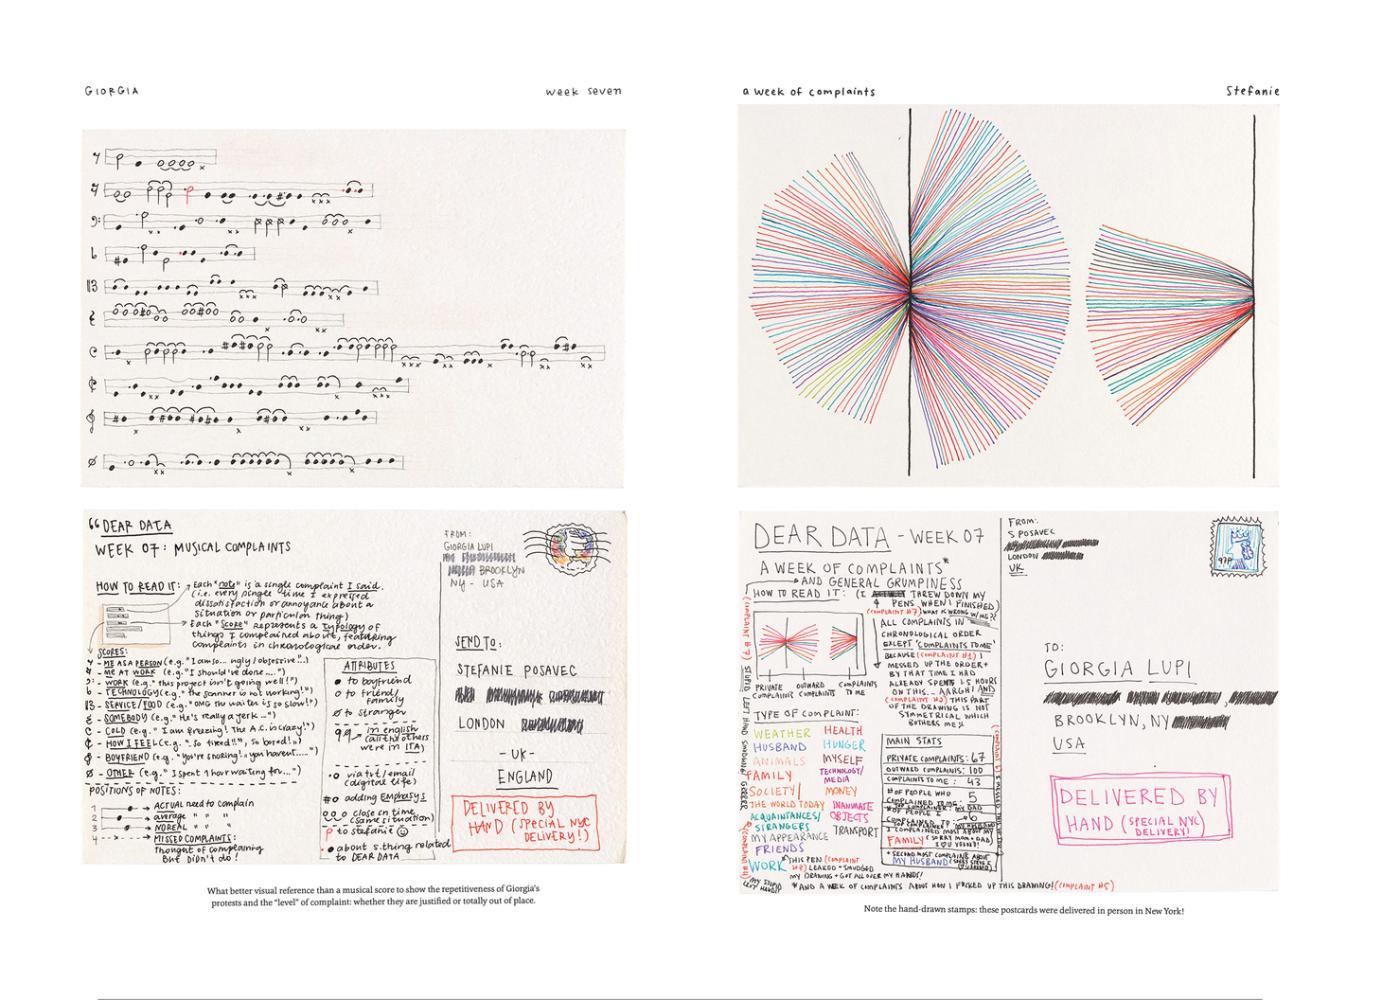 GIORGIA
week seven
a week of complaints
Stefanie
DEAR DATA
WEEK 07: MUSICAL COMPLAINTS
HOW TO READ IT:
Each "note" is a single complaint I said.
(i.e. every single time I expressed
dissatisfaction or annoyance about a
situation or particular thing)
Each "score" represents a typology of
things I complained about, featuring
complaints in chronological order.
SCORES:
- ME AS A PERSON (e.g. "I am so... ugly/obsessive"...)
- ME AT WORK (e.g. "I should've done....")
- WORK (e.g. "this project isn't going well!")
- TECHNOLOGY (e.g. "the scanner is not working!")
- SERVICE/FOOD (e.g. "OMG the waiter is so slow!")
- SOMEBODY (e.g. "He's really a jerk...")
- COLD (e.g. "I am freezing! The A.C. is crazy!")
- HOW I FEEL (e.g. "..so tired!", so bored!..)
- BOYFRIEND (e.g. "you're snoring!, you haven't.....")
- OTHER (e.g. "I spent 1 hour waiting for...")
POSITIONS OF NOTES:
1 ACTUAL need to complain
2 average " " "
3 NO REAL " " "
4 MISSED COMPLAINTS:
Thought of complaining
But DIDN'T do!
ATTRIBUTES
to boyfriend
to friend/
family
to stranger
in english
(all the others
were in ITA)
via txt/email
(digital life)
adding EMPHASYS
close in time
(same situation)
to stefanie
about s.thing related
to DEAR DATA
FROM:
GIORGIA LUPI
BROOKLYN
NY - USA
SEND TO:
STEFANIE POSAVEC
LONDON
- UK -
ENGLAND
DELIVERED BY
HAND (SPECIAL NYC
DELIVERY!)
What better visual reference than a musical score to show the repetitiveness of Giorgia's
protests and the "level" of complaint: whether they are justified or totally out of place.
DEAR DATA - WEEK 07
A WEEK OF COMPLAINTS*
AND GENERAL GRUMPINESS
HOW TO READ IT: (I THREW DOWN MY
PENS WHEN I FINISHED)
(COMPLAINT #7)
ALL COMPLAINTS IN
CHRONOLOGICAL ORDER
EXCEPT 'COMPLAINTS TO ME'
BECAUSE (COMPLAINT #1) I
MESSED UP THE ORDER +
BY THAT TIME I HAD
ALREADY SPENT 1.5 HOURS
ON THIS... AARGH! AND
(COMPLAINT #2) THIS PART
OF THE DRAWING IS NOT
SYMMETRICAL WHICH
BOTHERS ME
PRIVATE COMPLAINTS
OUTWARD COMPLAINTS
COMPLAINTS TO ME
TYPE OF COMPLAINT:
WEATHER
HUSBAND
ANIMALS
FAMILY
SOCIETY/
THE WORLD TODAY
ACQUAINTANCES/
STRANGERS
MY APPEARANCE
FRIENDS
WORK
HEALTH
HUNGER
MYSELF
TECHNOLOGY/
MEDIA
MONEY
INANIMATE
OBJECTS
TRANSPORT
MAIN STATS
PRIVATE COMPLAINTS: 67
OUTWARD COMPLAINTS: 100
COMPLAINTS TO ME: 43
# OF PEOPLE WHO
COMPLAINED TO ME: 5
FAMILY
(SORRY MOM + DAD)
SECOND MOST COMPLAINTS ABOUT
MY HUSBAND
THIS PEN (COMPLAINT
LEAKED + SMUDGED
MY DRAWING + GOT ALL OVER MY HANDS!
* AND A WEEK OF COMPLAINTS ABOUT HOW I F*CKED UP THIS DRAWING! (COMPLAINT #5)
FROM:
S POSAVEC
LONDON
UK
97P
TO:
GIORGIA LUPI
BROOKLYN, NY
USA
DELIVERED BY
HAND (SPECIAL NYC
DELIVERY)
Note the hand-drawn stamps: these postcards were delivered in person in New York!